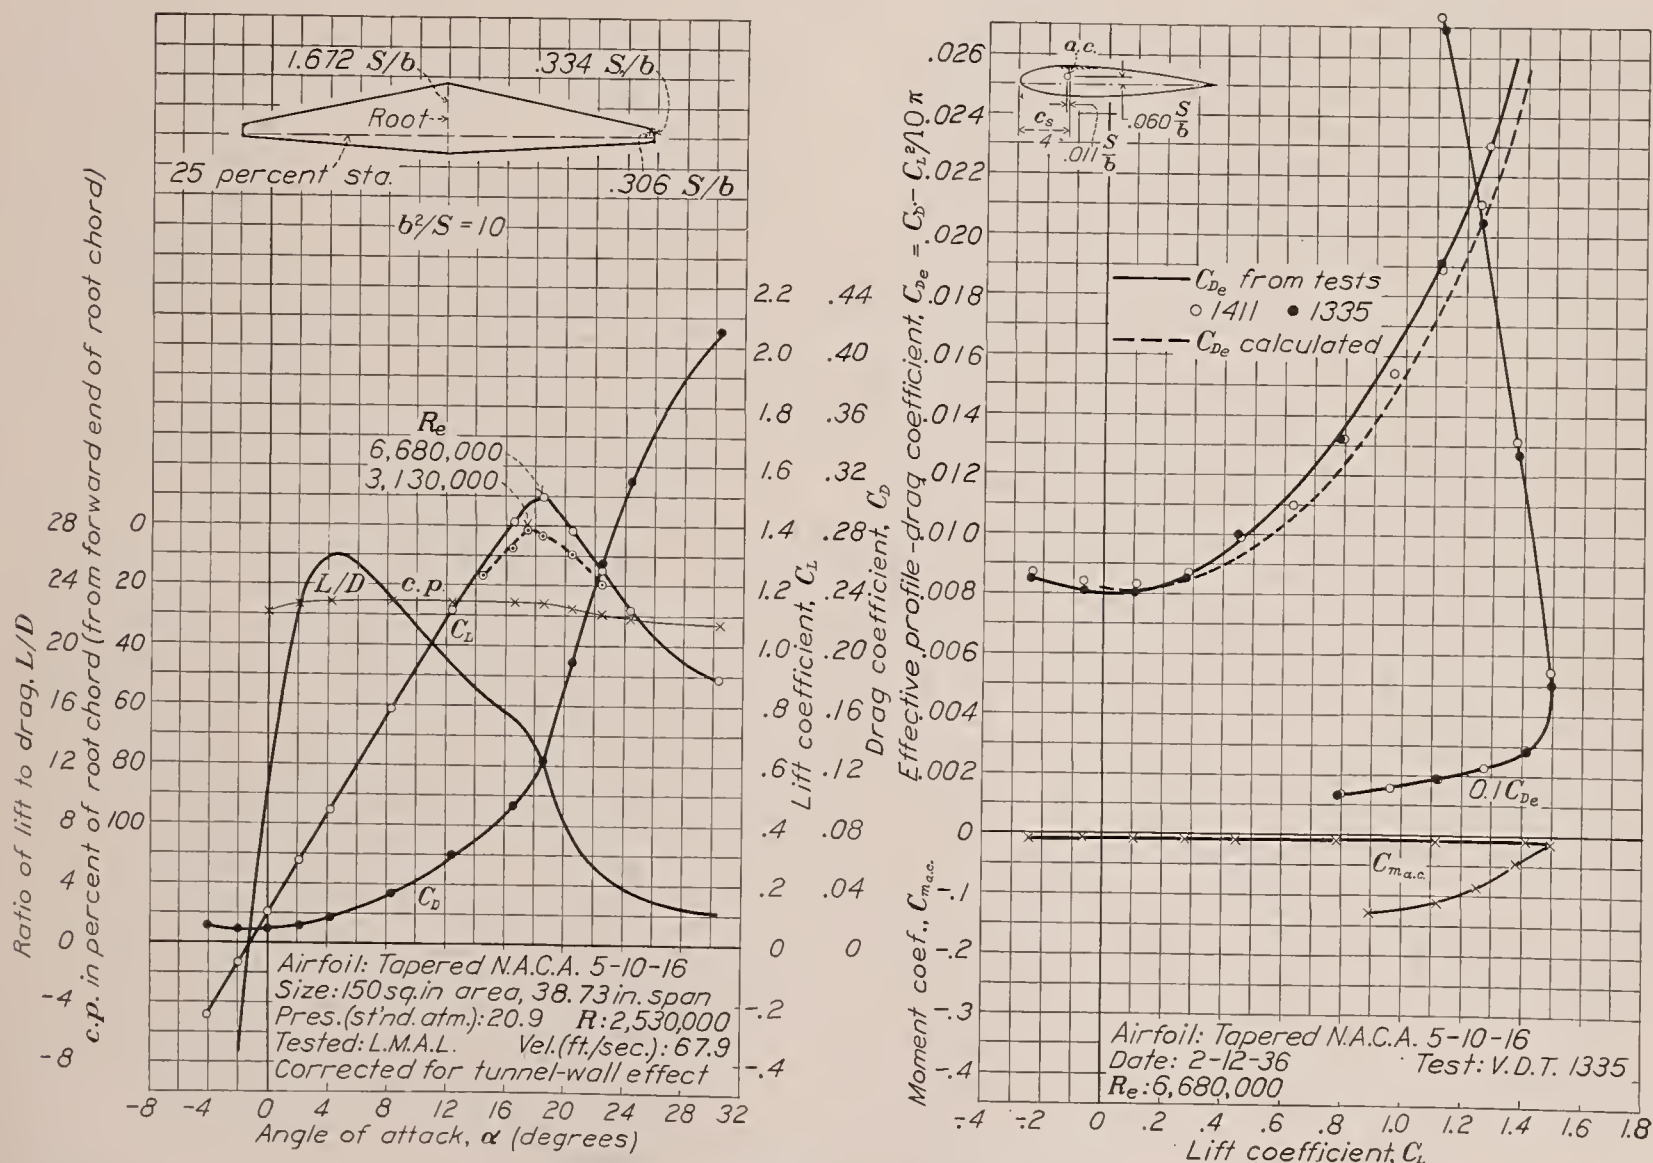 1.672 S/b
.334 S/b
Root
25 percent sta.
.306 S/b
b²/S = 10
Ratio of lift to drag, L/D
c.p. in percent of root chord (from forward end of root chord)
28
24
20
16
12
8
4
0
-4
-8
0
20
40
60
80
100
R_e
6,680,000
3,130,000
L/D
c.p.
C_L
C_D
2.2
2.0
1.8
1.6
1.4
1.2
1.0
.8
.6
.4
.2
0
-.2
-.4
Lift coefficient, C_L
.44
.40
.36
.32
.28
.24
.20
.16
.12
.08
.04
0
Drag coefficient, C_D
Airfoil: Tapered N.A.C.A. 5-10-16
Size: 150 sq.in area, 38.73 in. span
Pres. (st'nd. atm.): 20.9 R: 2,530,000
Tested: L.M.A.L. Vel. (ft./sec.): 67.9
Corrected for tunnel-wall effect
-8 -4 0 4 8 12 16 20 24 28 32
Angle of attack, α (degrees)
Effective profile-drag coefficient, C_De = C_D - C_L²/10π
.026
.024
.022
.020
.018
.016
.014
.012
.010
.008
.006
.004
.002
0
-.1
-.2
-.3
-.4
Moment coef., C_m a.c.
a.c.
c_s
4
.011 S/b
.060 S/b
C_De from tests
○ 1411 ● 1335
C_De calculated
0.1 C_De
C_m a.c.
Airfoil: Tapered N.A.C.A. 5-10-16
Date: 2-12-36 Test: V.D.T. 1335
R_e: 6,680,000
-.4 -.2 0 .2 .4 .6 .8 1.0 1.2 1.4 1.6 1.8
Lift coefficient, C_L